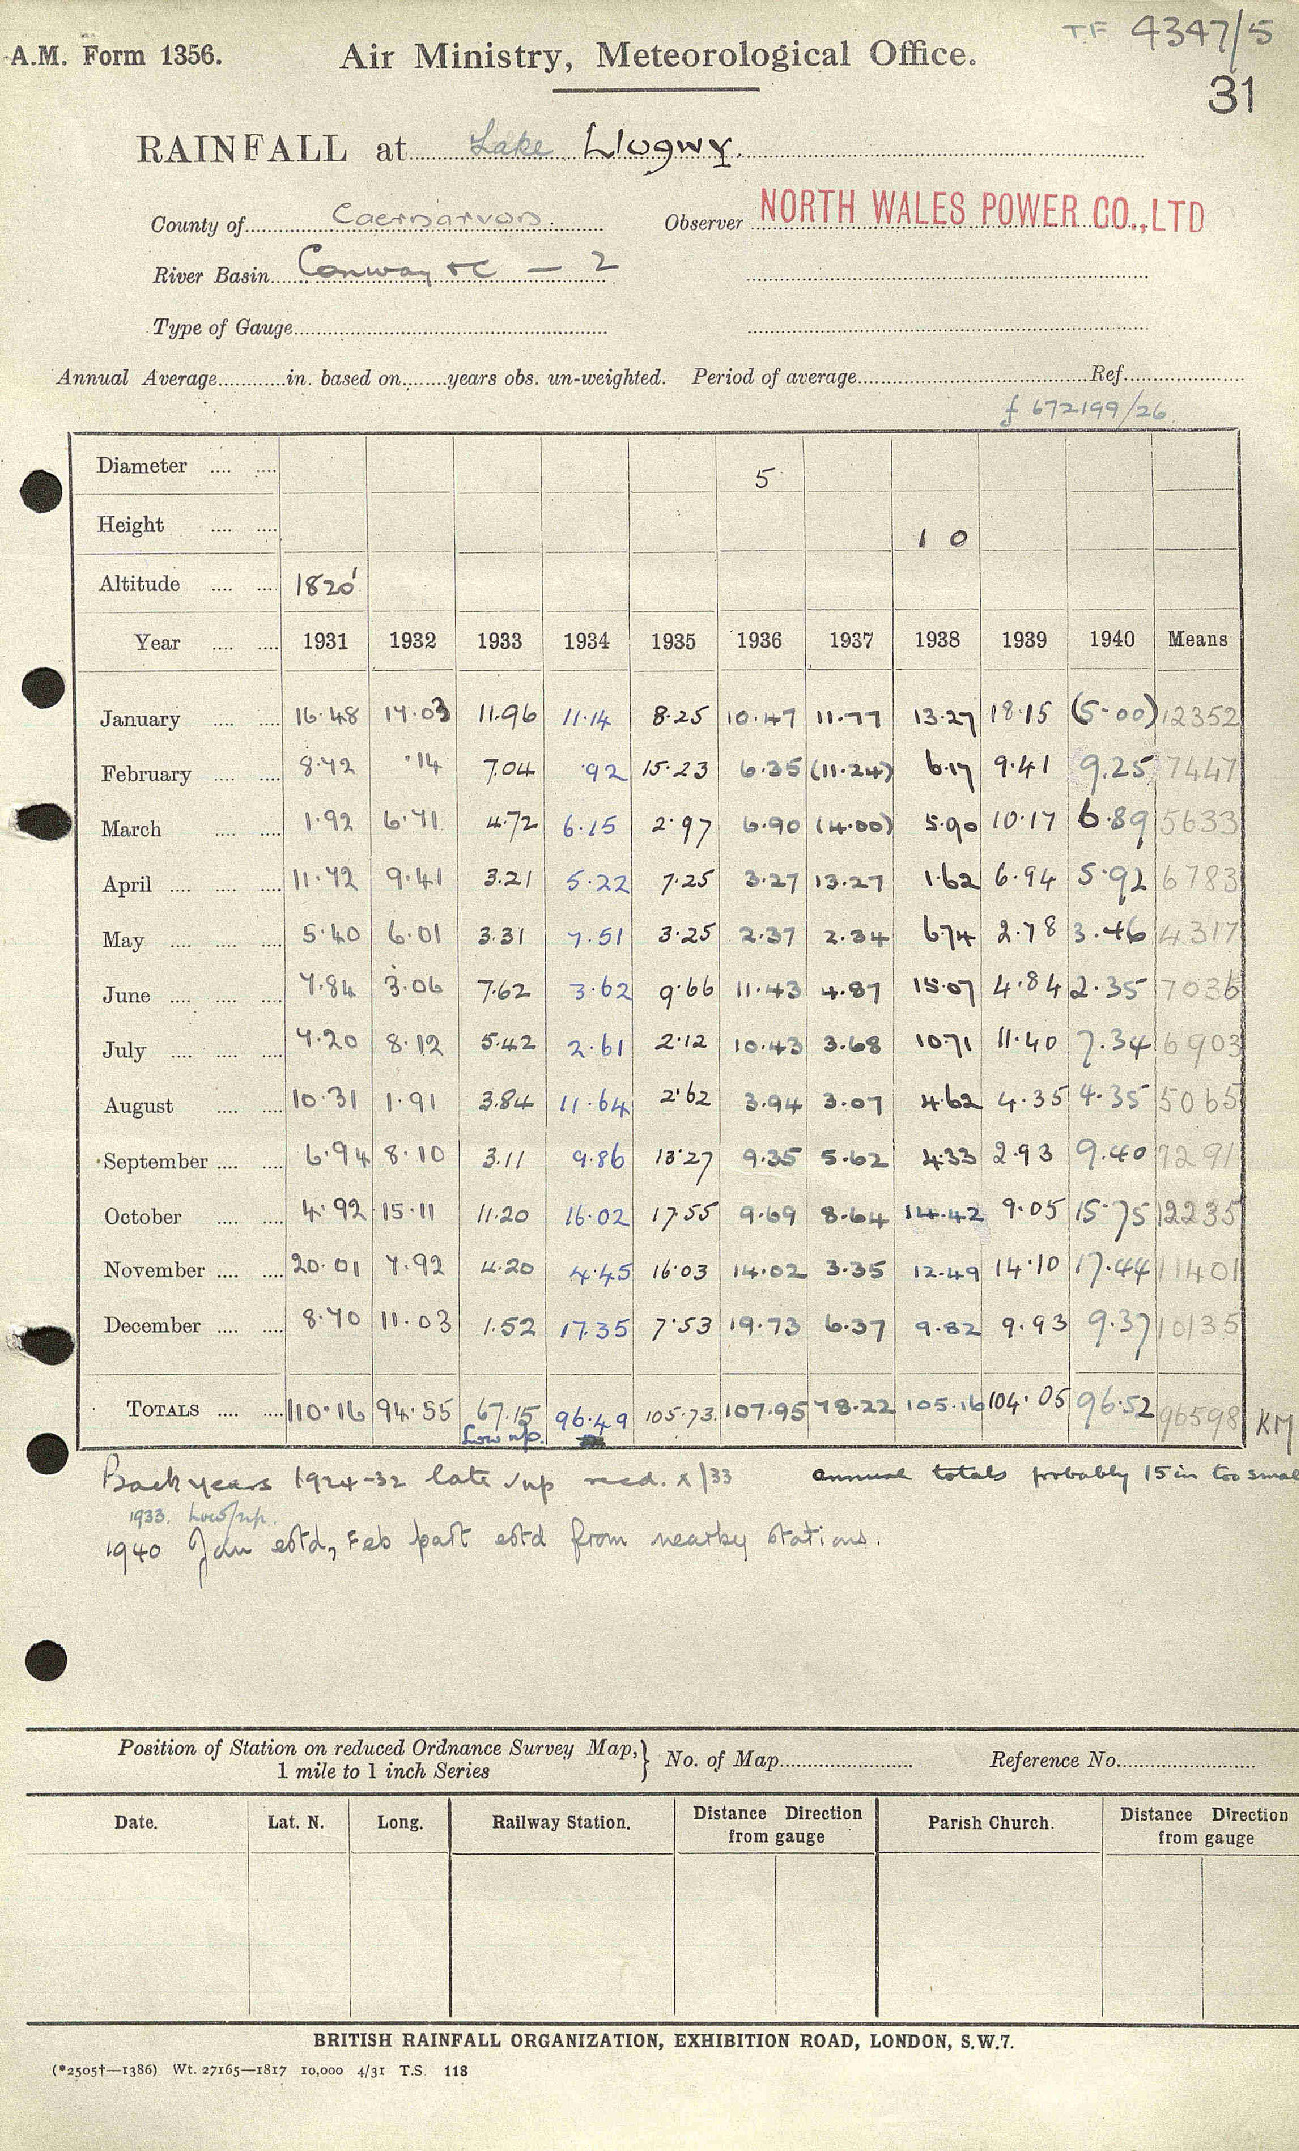 T.F 4347/5
A.M. Form 1356. Air Ministry, Meteorological Office.
31
RAINFALL at Lake Llugwy.
County of Caernarvon. Observer NORTH WALES POWER CO., LTD
River Basin Conway &c — 2
Type of Gauge
Annual Average in. based on years obs. un-weighted. Period of average Ref.
f 672199/26
Diameter 5
Height 1 0
Altitude 1820'
Year 1931 1932 1933 1934 1935 1936 1937 1938 1939 1940 Means
January 16.48 17.03 11.96 11.14 8.25 10.47 11.77 13.27 18.15 (5.00) 12352
February 8.72 .14 7.04 .92 15.23 6.35 (11.24) 6.17 9.41 9.25 7447
March 1.92 6.71 4.72 6.15 2.97 6.90 (4.00) 5.90 10.17 6.89 5633
April 11.72 9.41 3.21 5.22 7.25 3.27 13.27 1.62 6.94 5.92 6783
May 5.40 6.01 3.31 7.51 3.25 2.37 2.34 6.74 2.78 3.46 4317
June 7.84 3.06 7.62 3.62 9.66 11.43 4.87 15.07 4.84 2.35 7036
July 7.20 8.12 5.42 2.61 2.12 10.43 3.68 10.71 11.40 7.34 6903
August 10.31 1.91 3.84 11.64 2.62 3.94 3.07 4.62 4.35 4.35 5065
September 6.94 8.10 3.11 9.86 13.27 9.35 5.62 4.33 2.93 9.40 7291
October 4.92 15.11 11.20 16.02 17.55 9.69 8.64 14.42 9.05 15.75 12235
November 20.01 7.92 4.20 4.45 16.03 14.02 3.35 12.49 14.10 17.44 11401
December 8.70 11.03 1.52 17.35 7.53 19.73 6.37 9.82 9.93 9.37 10135
TOTALS 110.16 94.55 67.15 96.49 105.73 107.95 78.22 105.16 104.05 96.52 96598 KM
Low n/p.
Back years 1924-32 late n/p recd. x/33 annual totals probably 15 in too small
1933. Low n/p.
1940 Jan estd, Feb part estd from nearby stations.
Position of Station on reduced Ordnance Survey Map, } No. of Map Reference No.
1 mile to 1 inch Series
Date. Lat. N. Long. Railway Station. Distance Direction Parish Church. Distance Direction
from gauge from gauge
BRITISH RAINFALL ORGANIZATION, EXHIBITION ROAD, LONDON, S.W.7.
(*2505†—1386) Wt. 27165—1817 10,000 4/31 T.S. 118